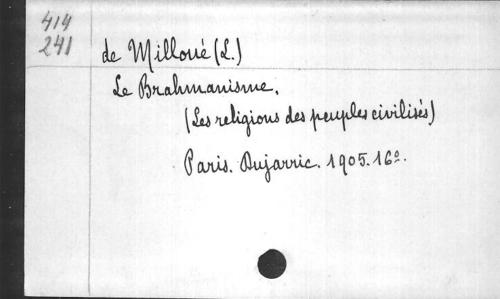 414
241
de Milloué (L.)
Le Brahmanisme.
(Les religions des peuples civilisés)
Paris. Dujarric. 1905. 16º.